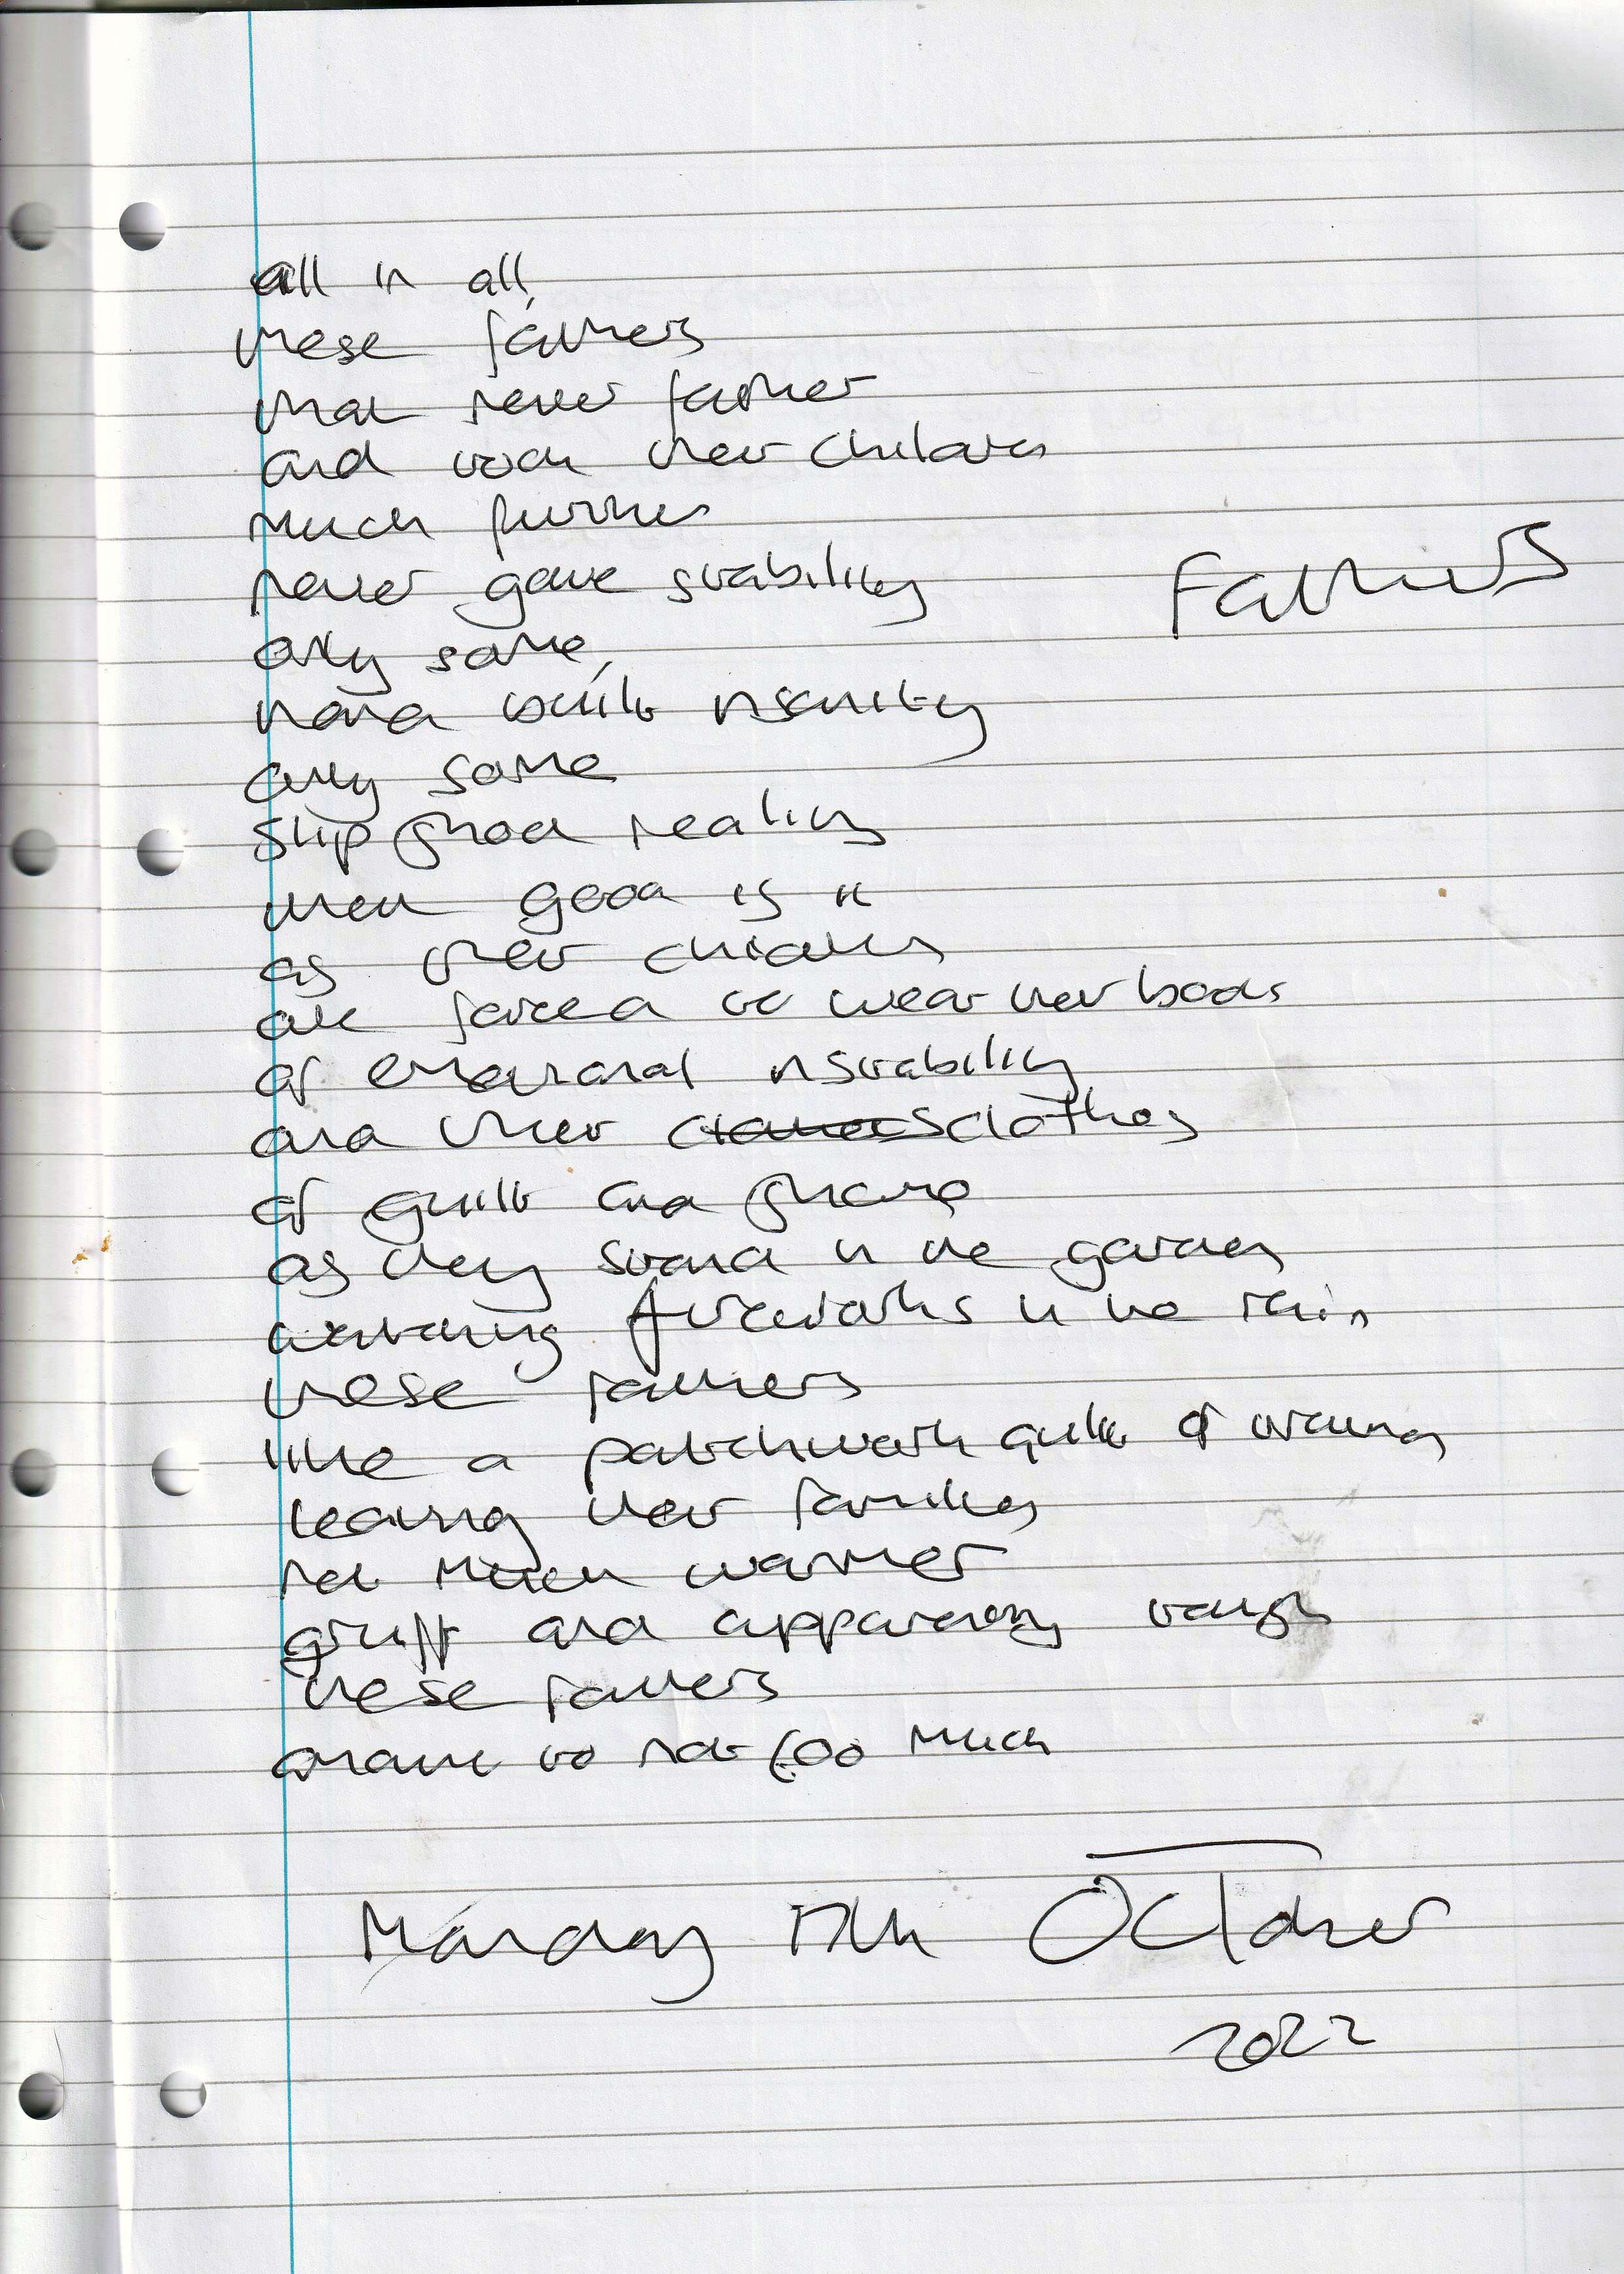 all in all,
these fathers
that never father
and took their children
much further
never gave stability
only some,
hand built insanity
only some
slip shod reality
what good is it
as their children
are forced to wear their boots
of emotional instability
and their clothes
of guilt and shame
as they stand in the garden
watching fireworks in the rain
these fathers
like a patchwork quilt of
leaving their families
not much warmer
gruff and apparently tough
these fathers
amount to not too much
Fathers
Monday 17th October
2022